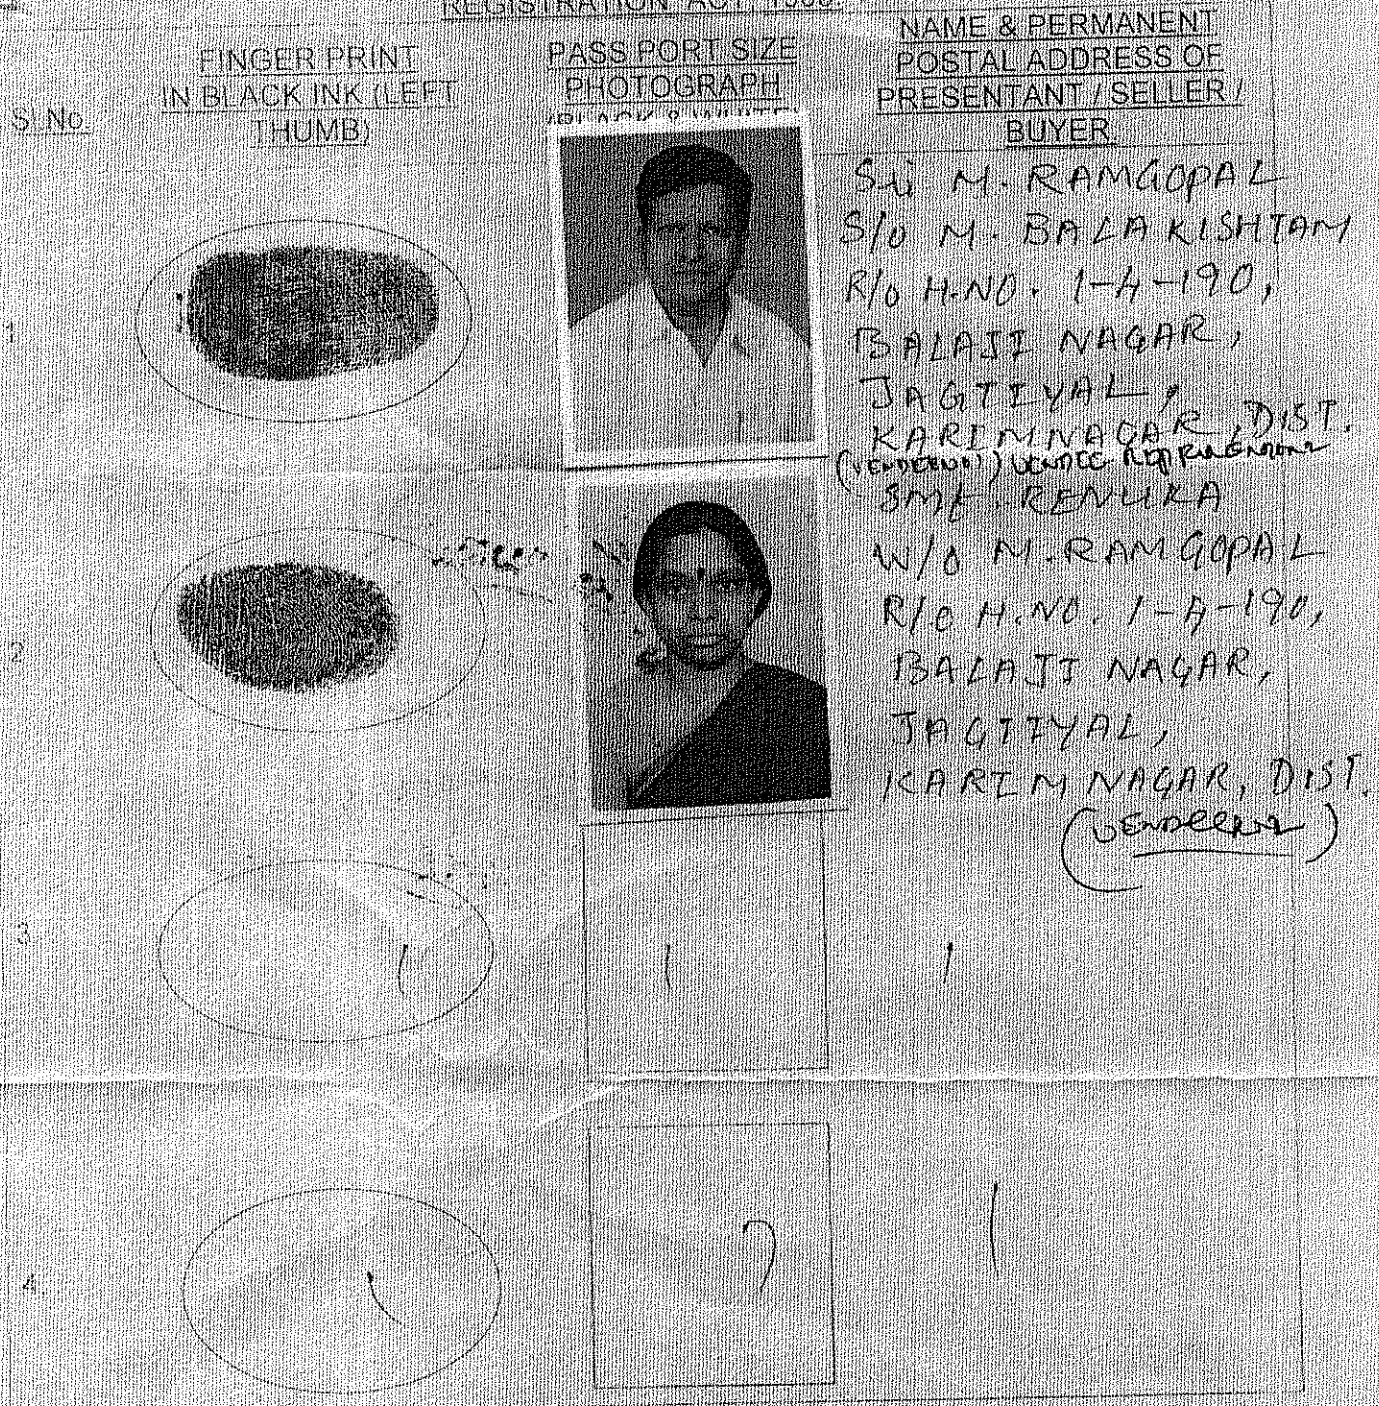 REGISTRATION ACT, 1908.
Sl.No.
FINGER PRINT
IN BLACK INK (LEFT
THUMB)
PASS PORT SIZE
PHOTOGRAPH
(BLACK & WHITE)
NAME & PERMANENT
POSTAL ADDRESS OF
PRESENTANT / SELLER /
BUYER.
1
Sri M. RAMGOPAL
S/o M. BALAKISHTAM
R/o H.NO. 1-4-190,
BALAJI NAGAR,
JAGTIYAL,
KARIMNAGAR, DIST.
2
SMt. RENUKA
W/o M. RAMGOPAL
R/o H.NO. 1-4-190,
BALAJI NAGAR,
JAGTIYAL,
KARIMNAGAR, DIST.
3
4.